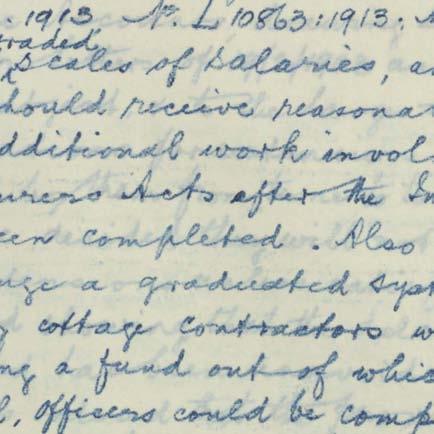 . 1913 No. L 10863:1913.
graded
scales of salaries, a
should receive reasona
dditional work invol
urers Acts after the In
een completed. Also
nge a graduated syst
cottage contractors w
ng a fund out of whic
l, officers could be comp